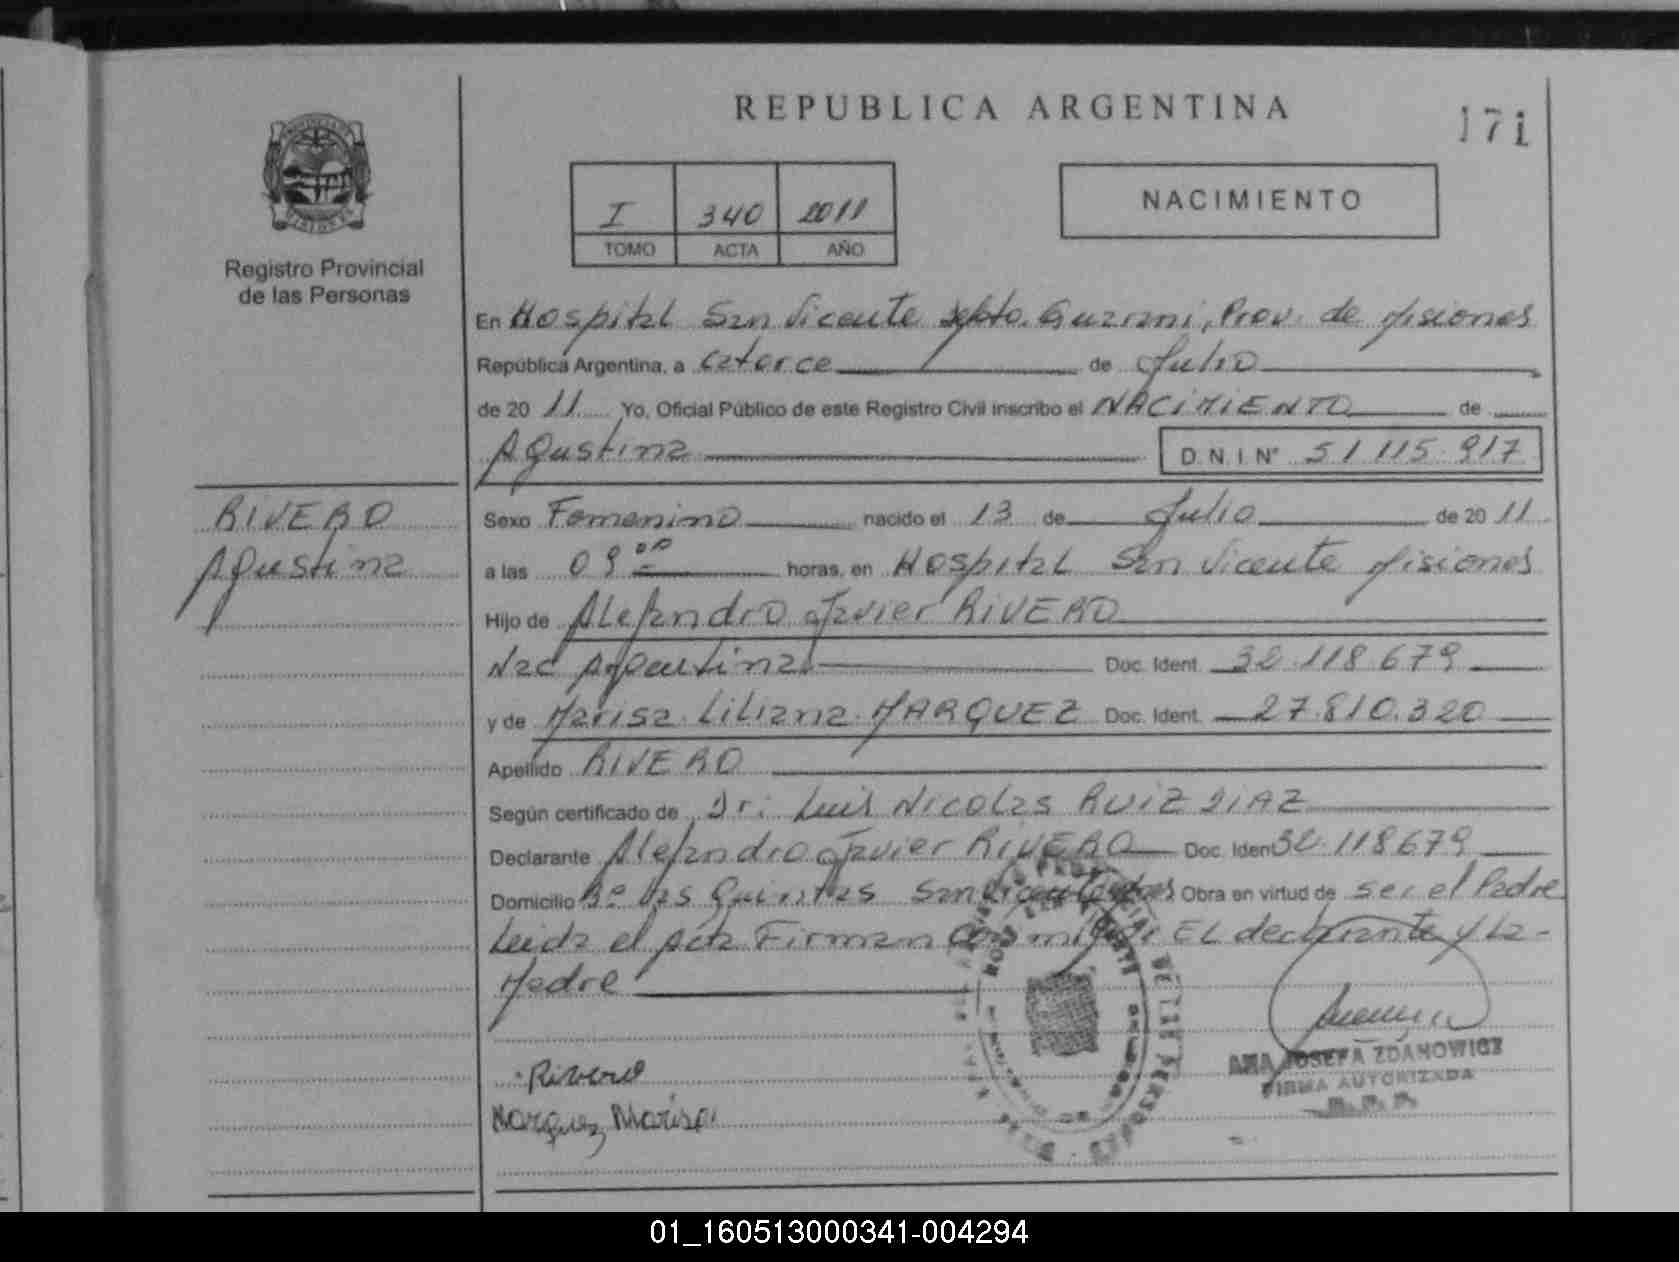 REPUBLICA ARGENTINA
171
I 340 2011
TOMO ACTA AÑO
NACIMIENTO
Registro Provincial
de las Personas
En Hospital San Vicente Depto. Guarani, Prov. de Misiones
República Argentina, a Catorce de Julio
de 20 11 Yo, Oficial Público de este Registro Civil inscribo el NACIMIENTO de
Agustina D.N.I. Nº 51 115 917
RIVERO
Agustina
Sexo Femenino nacido el 13 de Julio de 20 11
a las 09 00 horas, en Hospital San Vicente Misiones
Hijo de Alejandro Javier RIVERO
Nac Argentina Doc. Ident. 32.118.679
y de Marisa Liliana MARQUEZ Doc. Ident. 27.810.320
Apellido RIVERO
Según certificado de Dr: Luis Nicolas RUIZ DIAZ
Declarante Alejandro Javier RIVERO Doc. Iden 32.118679
Domicilio Bº Las Quintas San Vicente Obra en virtud de ser el Padre
Leida el Acta Firman El declarante y La-
Madre
Rivero
Marquez Marisa
ANA JOSEFA ZDANOWICZ
FIRMA AUTORIZADA
R.P.P.
01_160513000341-004294